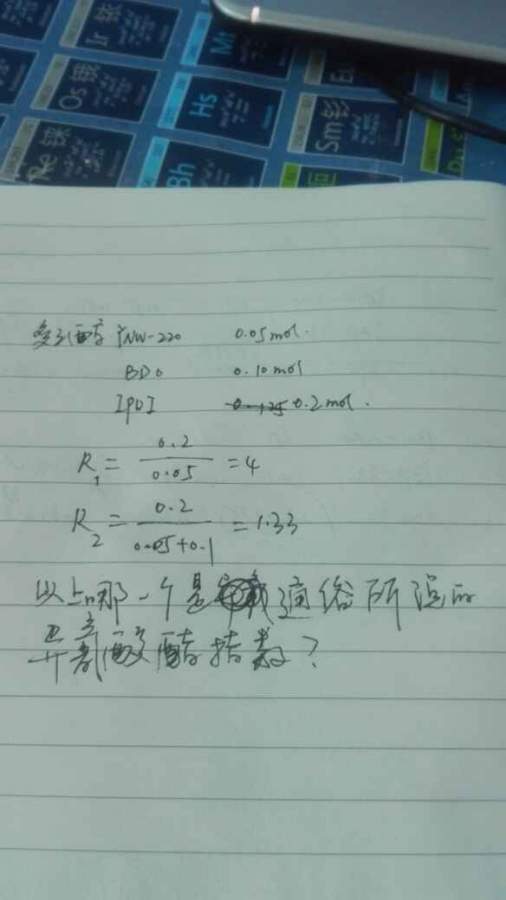 Ir 铱
Mt
Os 锇
Hs
Sm 钐
Re 铼
Bh
聚酯 YNW-220 0.05mol.
BDO 0.10mol
IPDI 0.125 0.2mol.
R₁ = 0.2 / 0.05 = 4
R₂ = 0.2 / 0.05+0.1 = 1.33
以上哪一个是 通俗所说的
异氰酸酯指数?